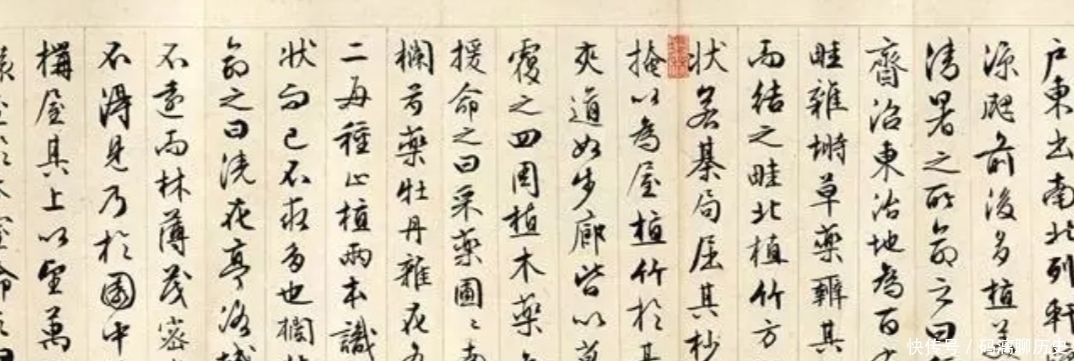 户東出南北列軒
涼飔前後多植美
清暑之所命之曰
齋沼東治地為百
畦雜蒔草藥辨其
而結之畦北植竹方
状若棊局屈其杪
掩以為屋植竹於其
夾道如步廊皆以蔓
覆之四周植木藥
援命之曰采藥圃〻南
欄芍藥牡丹雜花各
二每種止植兩本識
状而已不求多也欄
命之曰澆花亭洛城
不遠而林薄茂密
不得見乃於園中
構屋其上以望萬
快传号/码聊历史